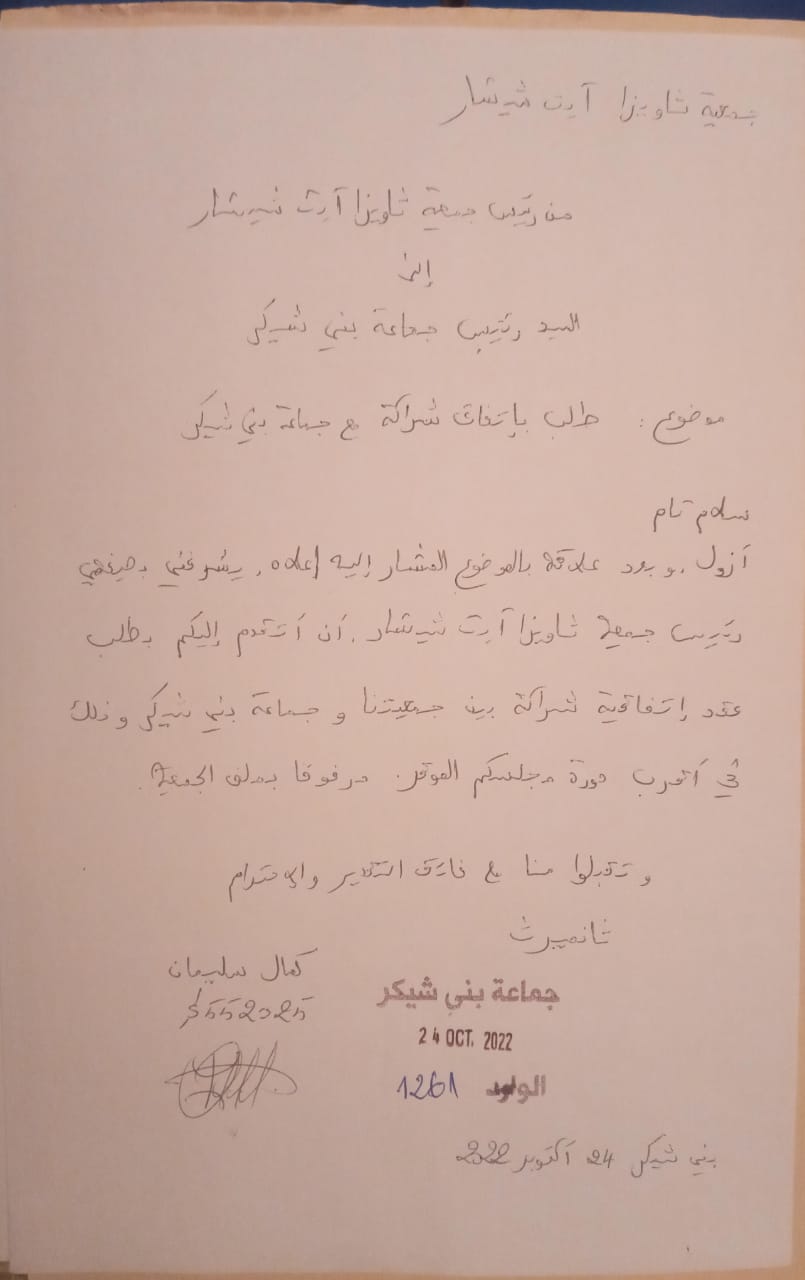 جمعية ثاويزا آيت شيشار
من رئيس جمعية ثاويزا آيت شيشار
إلى
السيد رئيس جماعة بني شيكر
موضوع: طلب بإتفاق شراكة مع جماعة بني شيكر
سلام تام
أزول، وبعد علاقة بالموضوع المشار إليه أعلاه، يشرفني بصفتي
رئيس جمعية ثاويزا آيت شيشار، أن أتقدم إليكم بطلب
عقد إتفاقية شراكة بين جمعيتنا و جماعة بني شيكر وذلك
في أقرب دورة مجلسكم الموقر. مرفوقا بملف الجمعية.
و تقبلوا منا مع فائق التقدير والإحترام
ثانميرث
كمال سليمان
جماعة بني شيكر
24 OCT. 2022
الوارد 1261
بني شيكر 24 أكتوبر 2022